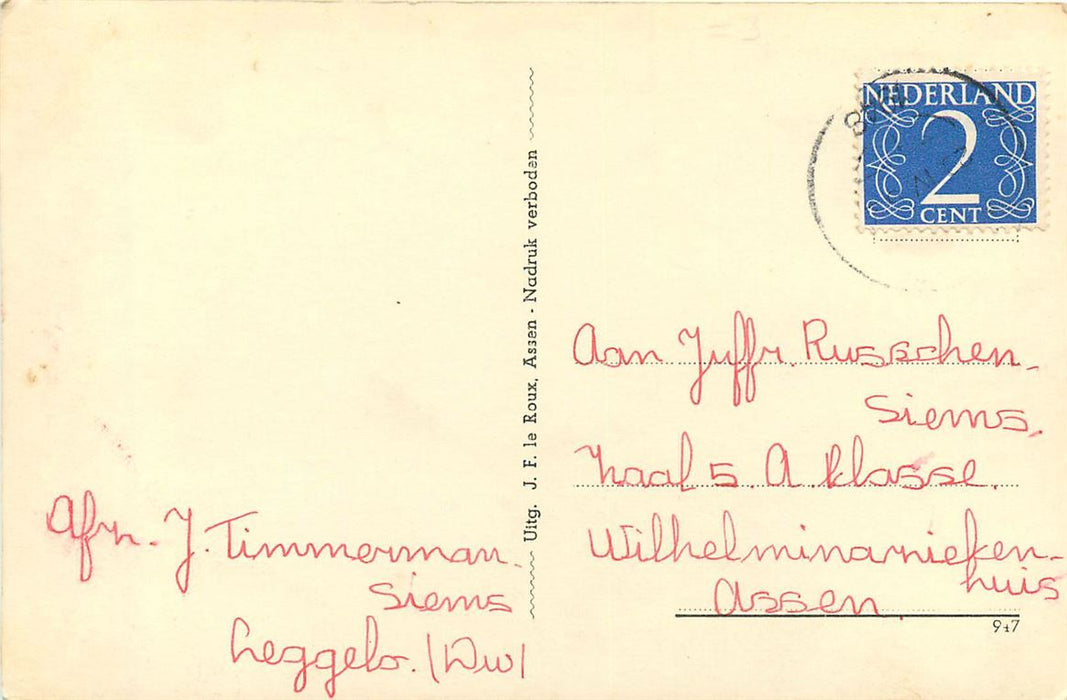 NEDERLAND
2
CENT
Uitg. J. F. le Roux, Assen - Nadruk verboden
Aan Juffr. Russchen-
Siems.
Zaal 5. A. klasse.
Wilhelminaziekenhuis
Assen
947
Afz. J. Timmerman-
Siems
Leggelo. (Dw)